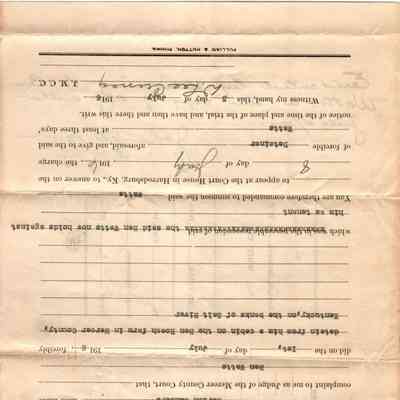 complaint to me as Judge of the Mercer County Court, that
Dan Watts
did on the 1st, day of July 191 6 ; forcibly
detain from him a cabin on the Roach farm in Mercer County,
Kentucky, on the banks of Salt River
which was in the peaceable possession of said the said Dan Watts now holds against
him as tenant
You are therefore commanded to summon the said Watts
to appear at the Court House in Harrodsburg, Ky., to answer on the
8 day of July 1916, the charge
of forcible Detainer aforesaid, and give to the said
Watts at least three days'
notice of the time and place of the trial, and have then and there this writ.
Witness my hand, this 3 day of July 1916
J. M. C. C.
PULLIAM & HUTTON,